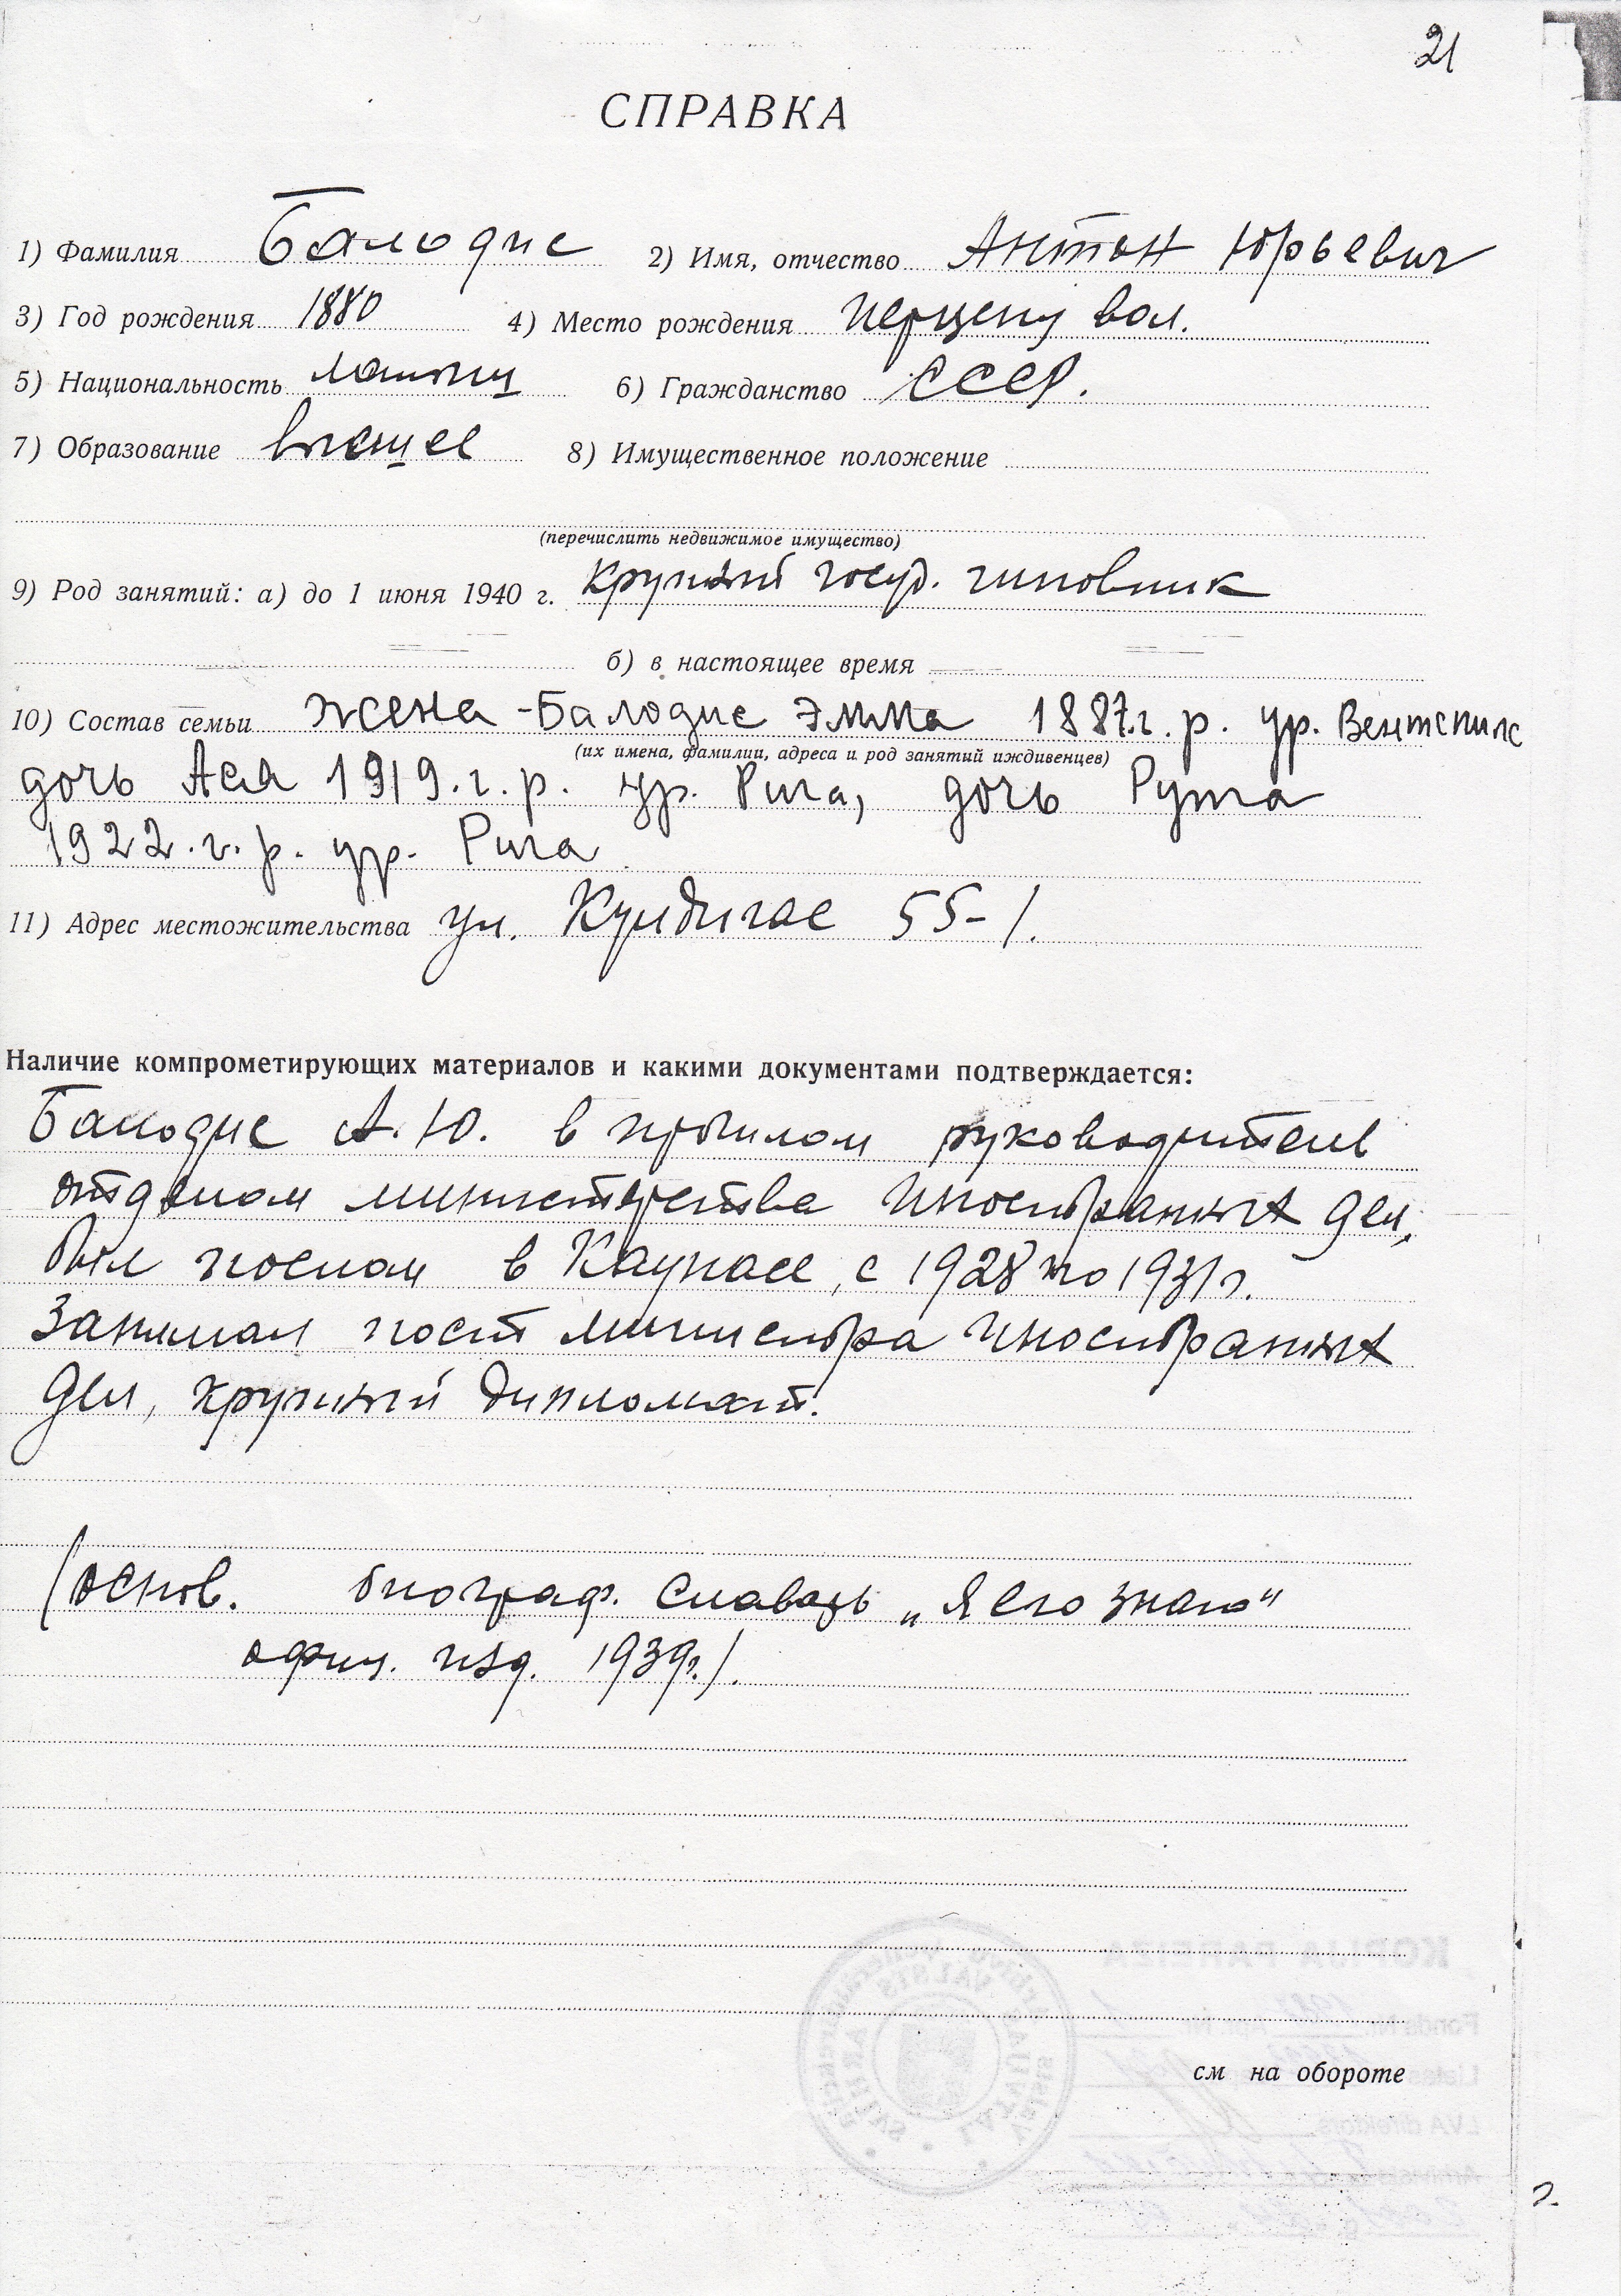 21
СПРАВКА
1) Фамилия Балодис 2) Имя, отчество Антон Юрьевич
3) Год рождения 1880 4) Место рождения вол.
5) Национальность латыш 6) Гражданство СССР.
7) Образование высшее 8) Имущественное положение
(перечислить недвижимое имущество)
9) Род занятий: а) до 1 июня 1940 г. крупный госуд. чиновник
б) в настоящее время
10) Состав семьи жена - Балодис Эмма 1887.г.р. ур. Вентспилс
(их имена, фамилии, адреса и род занятий иждивенцев)
дочь Ася 1919.г.р. ур. Рига, дочь Рута
1922.г.р. ур. Рига
11) Адрес местожительства ул. Кулдигас 55-1.
Наличие компрометирующих материалов и какими документами подтверждается:
Балодис А.Ю. в прошлом руководитель
отделом министерства иностранных дел,
был послом в Каунасе, с 1928 по 1931 г.
занимал пост министра иностранных
дел, крупный дипломат.
(основ. биограф. словарь „Я его знаю“
офиц. изд. 1939г.).
KOPIJA PAREIZA
Fonda Nr. Apr. Nr.
LVA direktors
см на обороте